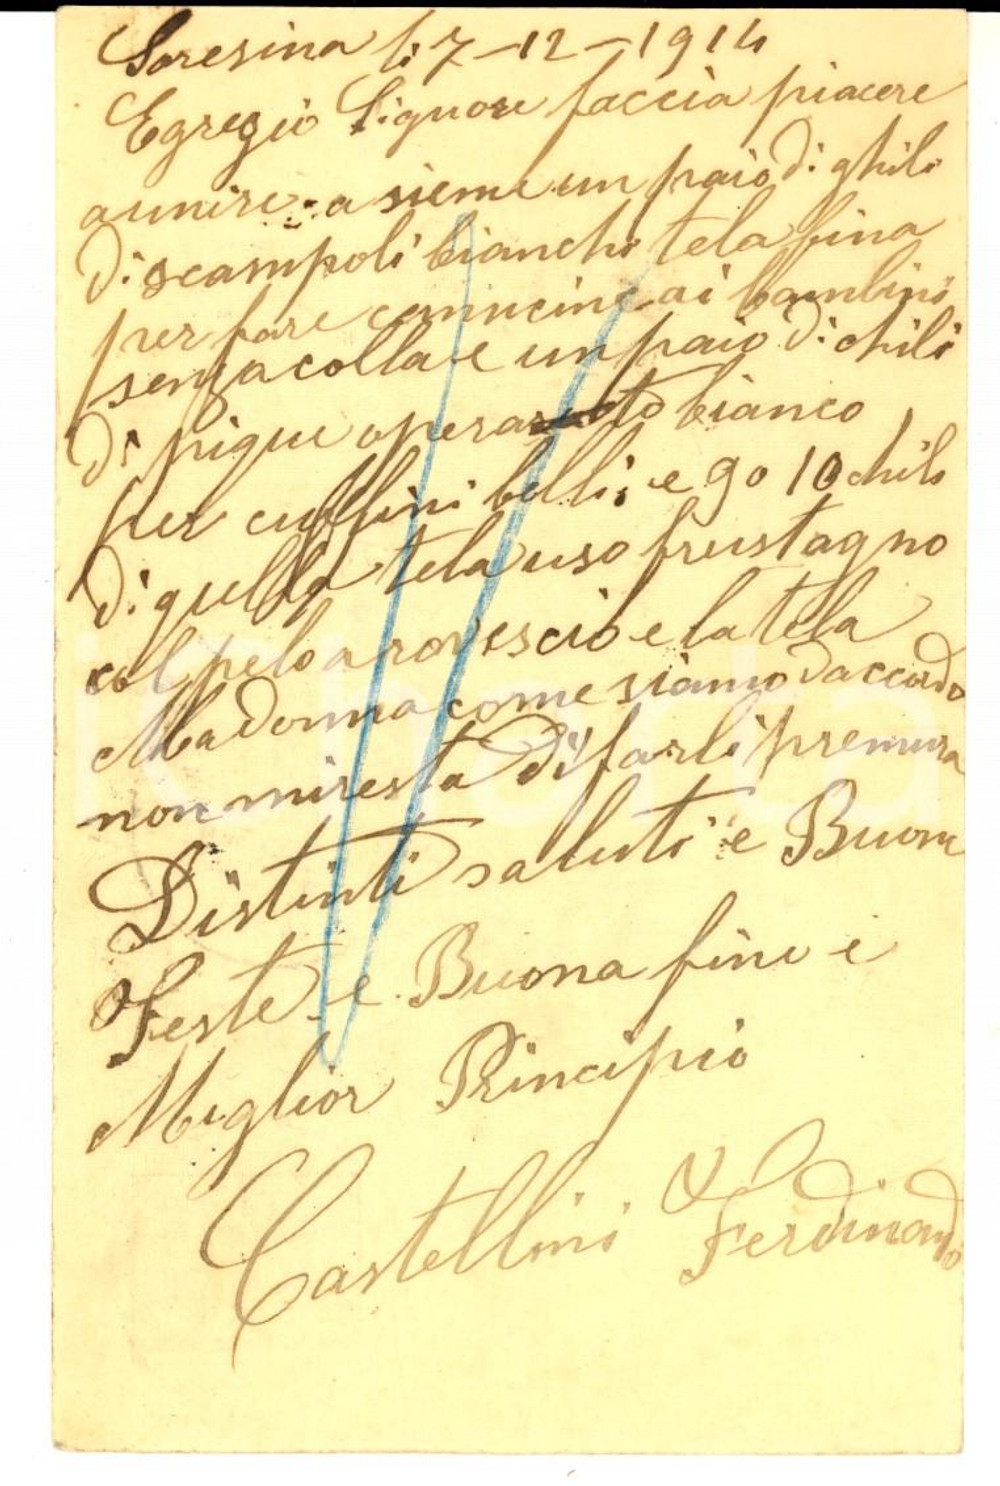 Soresina li 7-12-1914
Egregio Signore faccia piacere
a unire a sieme un paio di ghili
di scampoli bianchi tela fina
per fare camicine ai bambini
senza colla e un paio di chili
di pique operato bianco
per cuffini belli; e 9 o 10 chili
di quella tela uso frustagno
col pelo a rovescio e la tela
Madonna come siamo daccordo
non mi resta di farli premura
Distinti saluti e Buone
Feste e Buona fine e
Miglior Principio
Castellini Ferdinando